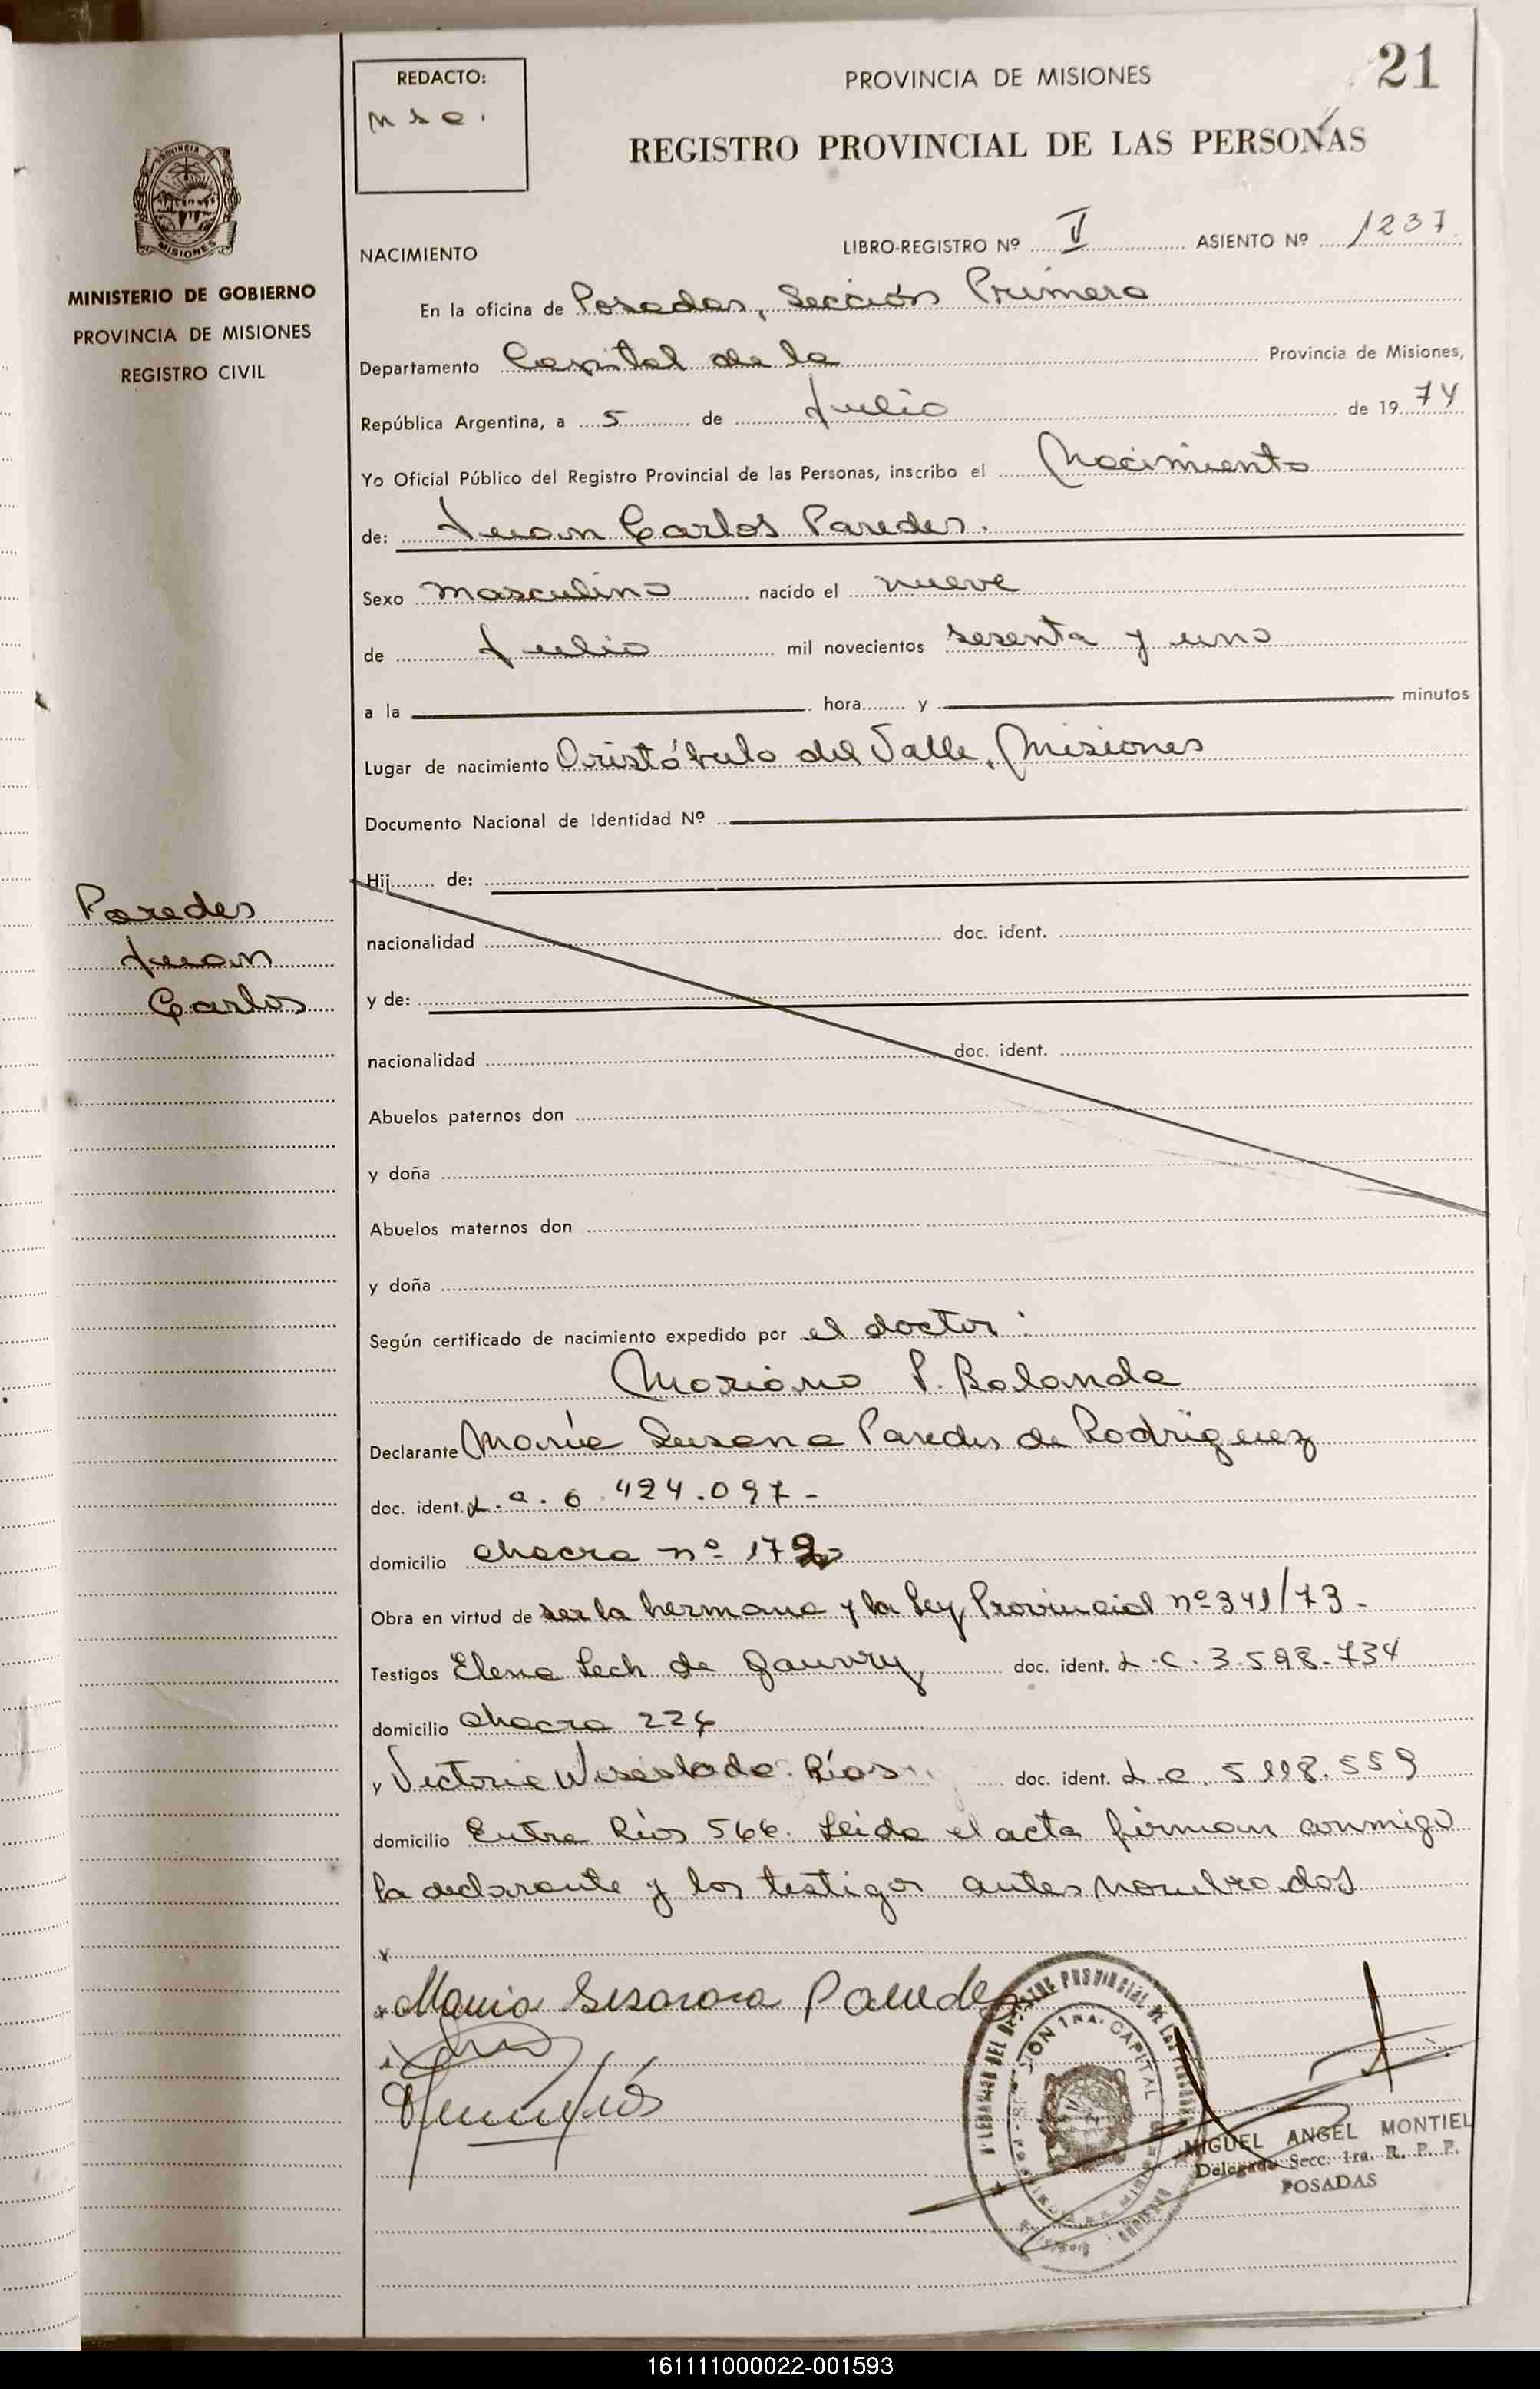 21
REDACTO:
PROVINCIA DE MISIONES
REGISTRO PROVINCIAL DE LAS PERSONAS
PROVINCIA
MISIONES
MINISTERIO DE GOBIERNO
PROVINCIA DE MISIONES
REGISTRO CIVIL
NACIMIENTO LIBRO-REGISTRO Nº V ASIENTO Nº 1237
En la oficina de Posadas, Sección Primera
Departamento Capital de la Provincia de Misiones,
República Argentina, a 5 de Julio de 19 74
Yo Oficial Público del Registro Provincial de las Personas, inscribo el Nacimiento
de: Juan Carlos Paredes.
Sexo masculino nacido el nueve
de Julio mil novecientos sesenta y uno
a la hora y minutos
Lugar de nacimiento Aristóbulo del Valle, Misiones
Documento Nacional de Identidad Nº
Hij de:
Paredes
Juan
Carlos
nacionalidad doc. ident.
y de:
nacionalidad doc. ident.
Abuelos paternos don
y doña
Abuelos maternos don
y doña
Según certificado de nacimiento expedido por el doctor:
Mariano P. Balanda
Declarante María Susana Paredes de Rodríguez
doc. ident. L.C. 6.424.097-
domicilio chacra nº 172
Obra en virtud de ser la hermana y la Ley Provincial nº 341/73-
Testigos Elena Lech de doc. ident. L.C. 3.598.734
domicilio chacra 224
y Victoria Ríos doc. ident. L.C. 5.118.559
domicilio Entre Ríos 566. Leída el acta firman conmigo
la declarante y los testigos antes nombrados
Maria Susana Paredes
MIGUEL ANGEL MONTIEL
Delegado Secc. 1ra. R. P. P.
POSADAS
161111000022-001593